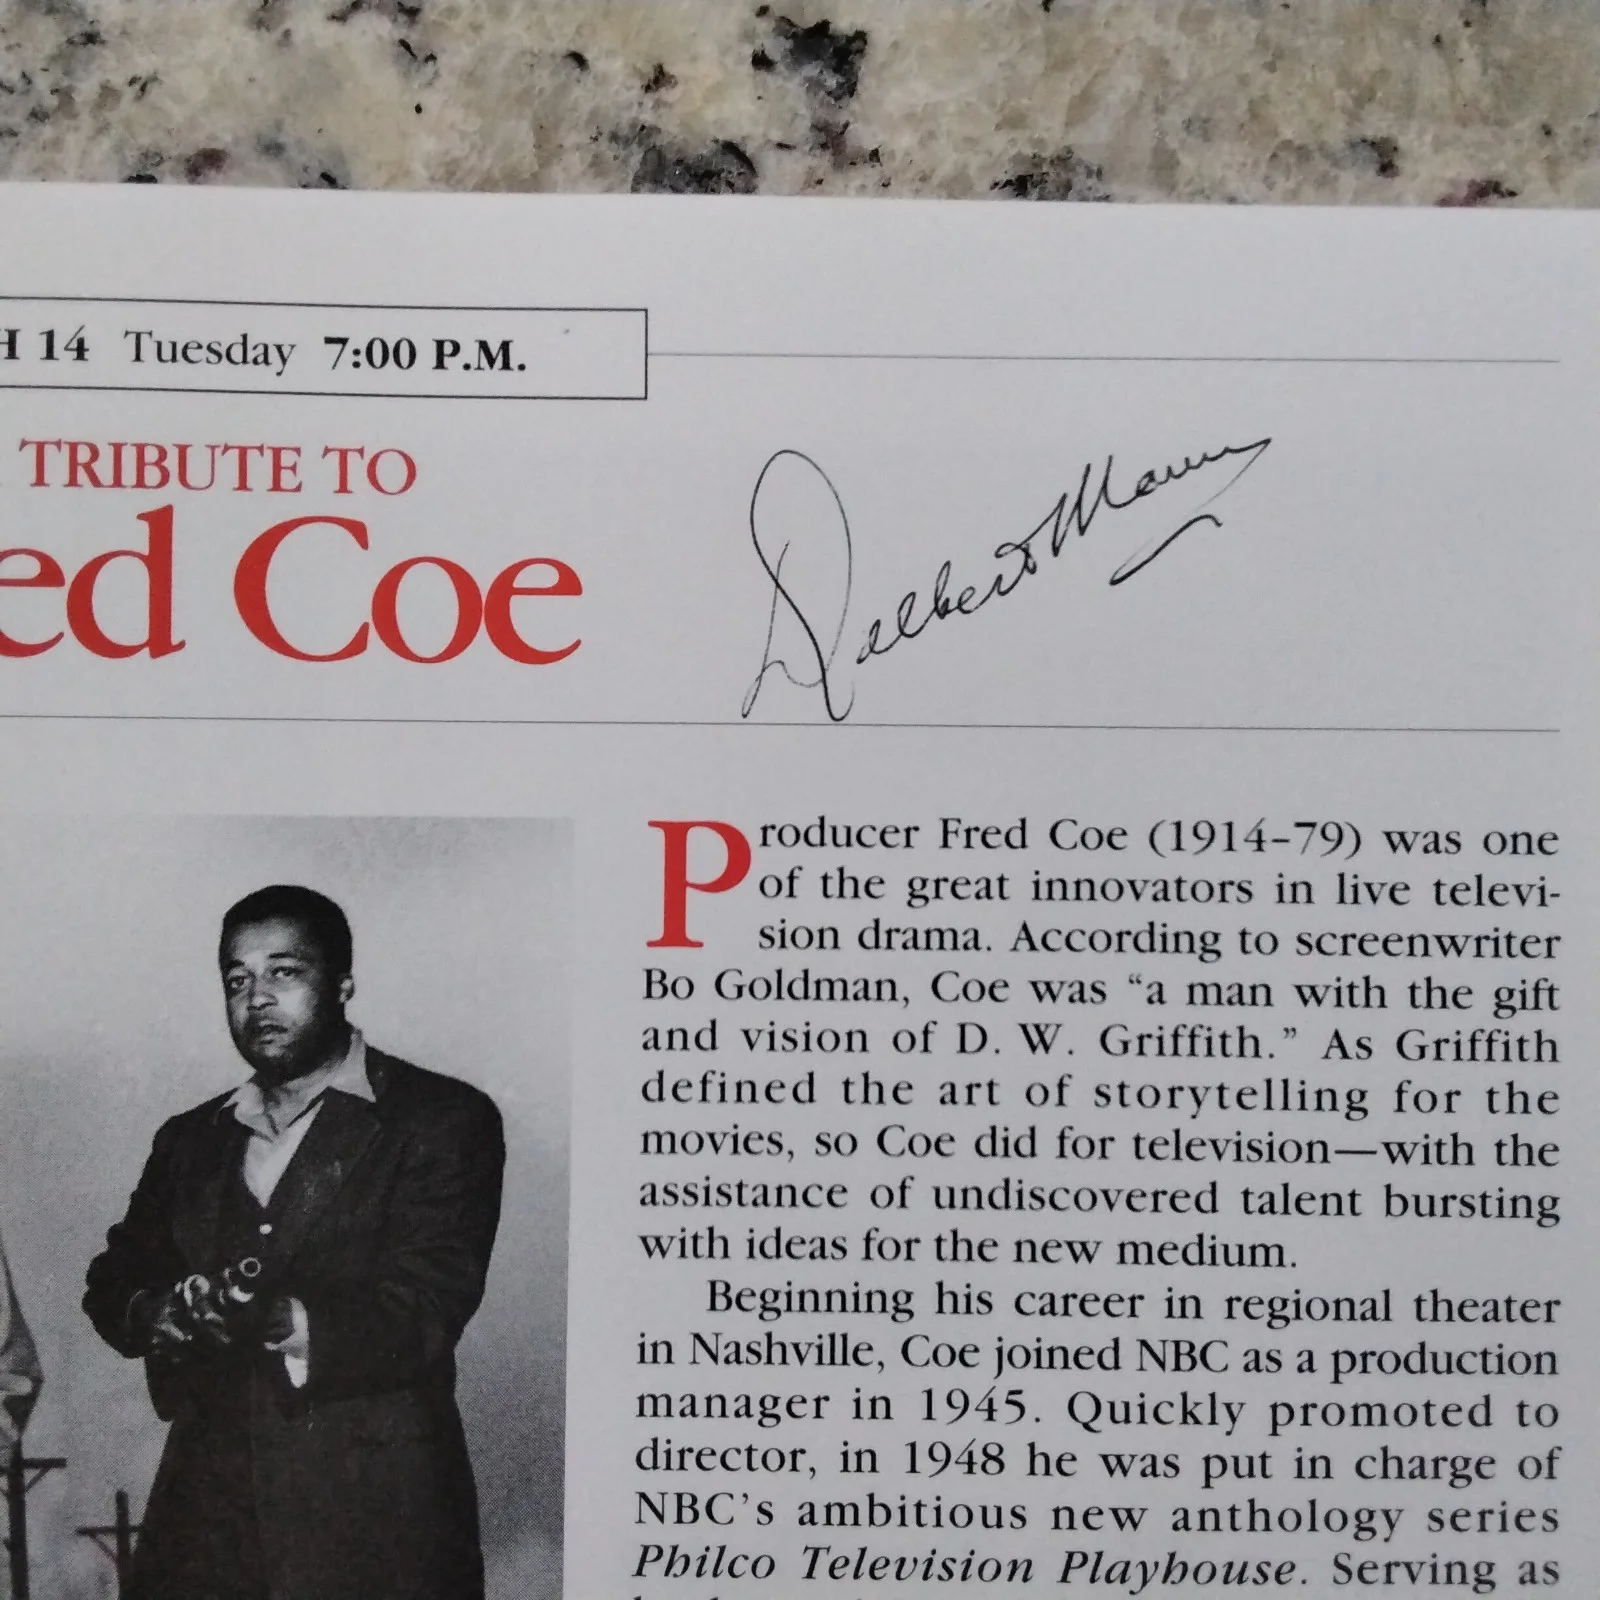 H 14 Tuesday 7:00 P.M.
TRIBUTE TO
ed Coe
Delbert Mann
Producer Fred Coe (1914–79) was one
of the great innovators in live televi-
sion drama. According to screenwriter
Bo Goldman, Coe was “a man with the gift
and vision of D. W. Griffith.” As Griffith
defined the art of storytelling for the
movies, so Coe did for television—with the
assistance of undiscovered talent bursting
with ideas for the new medium.
Beginning his career in regional theater
in Nashville, Coe joined NBC as a production
manager in 1945. Quickly promoted to
director, in 1948 he was put in charge of
NBC’s ambitious new anthology series
Philco Television Playhouse. Serving as